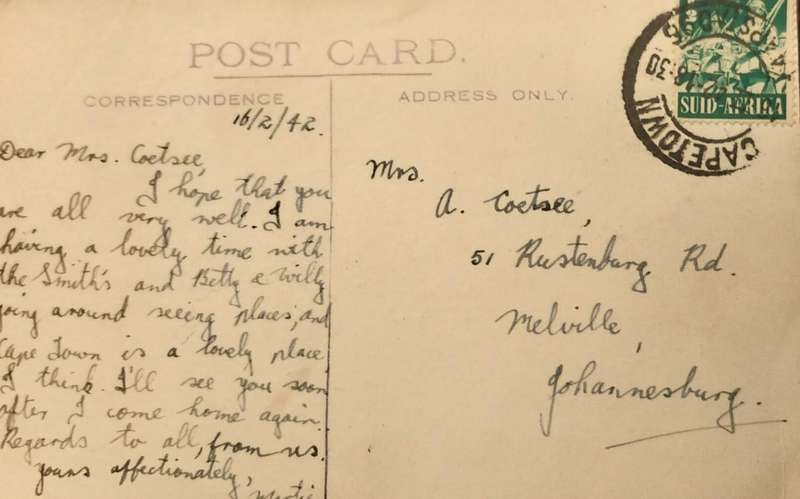 POST CARD.
CORRESPONDENCE
ADDRESS ONLY.
16/2/42.
Dear Mrs. Coetsee,
I hope that you
are all very well. I am
having a lovely time with
the Smith's and Betty & Willy
going around seeing places, and
Cape Town is a lovely place,
I think. I'll see you soon
after I come home again.
Regards to all, from us.
yours affectionately,
Mrs.
A. Coetsee,
51 Rustenburg Rd.
Melville,
Johannesburg.
SUID-AFRIKA
CAPETOWN
KAAPSTAD